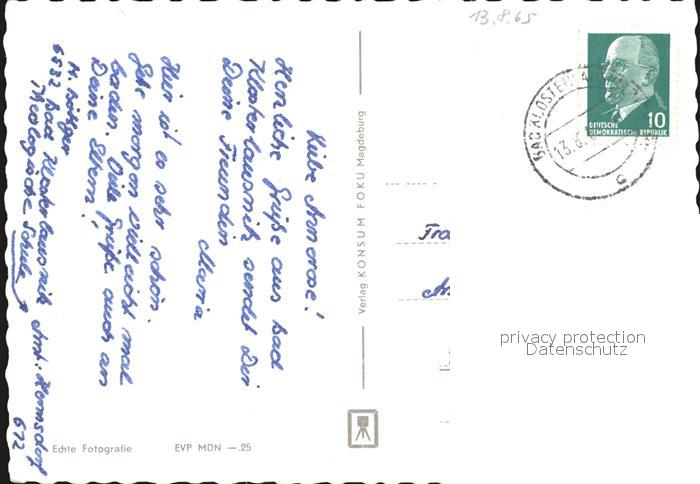 13.8.65
Liebe Annerose!
Herzliche Grüße aus Bad
Klosterlausnitz sendet Dir
Deine Freundin
Maria
Hier ist es sehr schön.
Geht morgen vielleicht mal
baden. Viele Grüße auch an
Deine Eltern!
M. Böttger
6532 Bad Klosterlausnitz
Theologische Schule
Amt: Hermsdorf
672
Echte Fotografie
EVP MDN —.25
Verlag KONSUM FOKU Magdeburg
BAD KLOSTERLAUSNITZ
13.8.
c
DEUTSCHE
DEMOKRATISCHE REPUBLIK
10
privacy protection
Datenschutz